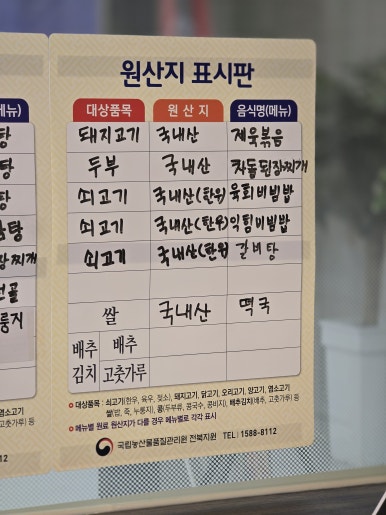 원산지 표시판
대상품목 원산지 음식명(메뉴)
돼지고기 국내산 제육볶음
두부 국내산 차돌된장찌개
쇠고기 국내산(한우) 육회비빔밥
쇠고기 국내산(한우) 익힘비빔밥
쇠고기 국내산(한우) 갈비탕
쌀 국내산 떡국
배추김치 배추
고춧가루
대상품목 : 쇠고기(한우, 육우, 젖소), 돼지고기, 닭고기, 오리고기, 양고기, 염소고기
쌀(밥, 죽, 누룽지), 콩(두부류, 콩국수, 콩비지), 배추김치(배추, 고춧가루) 등
메뉴별 원료 원산지가 다를 경우 메뉴별로 각각 표시
국립농산물품질관리원 전북지원 TEL : 1588-8112
메뉴)
탕
탕
탕
탕
장찌개
전골
룽지
염소고기
고춧가루) 등
12